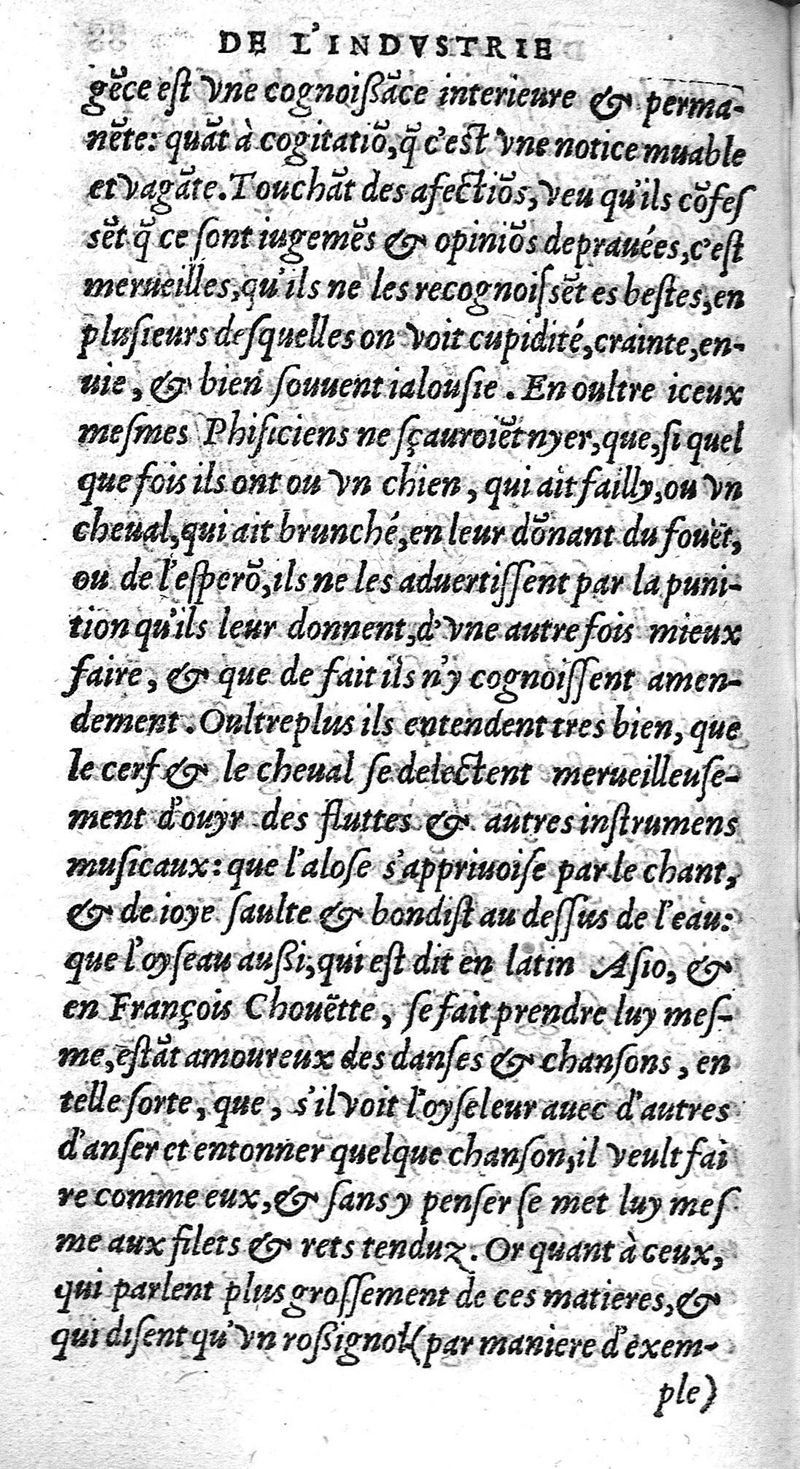 DE L'INDVSTRIE
gẽce eſt vne cognoißãce interieure & perma-
nẽte: quãt à cogitatiõ, q̃ c'eſt vne notice muable
et vagãte. Touchãt des afectiõs, veu qu'ils cõfeſ
sẽt q̃ ce ſont iugemẽs & opiniõs deprauées, c'eſt
merueilles, qu'ils ne les recognoiſsẽt es beſtes, en
pluſieurs deſquelles on voit cupidité, crainte, en-
uie, & bien ſouuent ialouſie. En oultre iceux
meſmes Phiſiciens ne ſçauroiẽt nyer, que, ſi quel
que fois ils ont ou vn chien, qui ait failly, ou vn
cheual, qui ait brunché, en leur dõnant du fouët,
ou de l'eſperõ, ils ne les aduertiſſent par la puni-
tion qu'ils leur donnent, d'vne autre fois mieux
faire, & que de fait ils n'y cognoiſſent amen-
dement. Oultreplus ils entendent tres bien, que
le cerf & le cheual ſe delectent merueilleuſe-
ment d'ouyr des fluttes & autres inſtrumens
muſicaux: que l'aloſe s'appriuoiſe par le chant,
& de ioye ſaulte & bondiſt au deſſus de l'eau:
que l'oyſeau außi, qui eſt dit en latin Aſio, &
en François Chouëtte, ſe fait prendre luy meſ-
me, eſtãt amoureux des danſes & chanſons, en
telle ſorte, que, s'il voit l'oyſeleur auec d'autres
d'anſer et entonner quelque chanſon, il veult fai
re comme eux, & ſans y penſer ſe met luy meſ
me aux filets & rets tenduz. Or quant à ceux,
qui parlent plus groſſement de ces matieres, &
qui diſent qu'vn roßignol (par maniere d'exem-
ple)